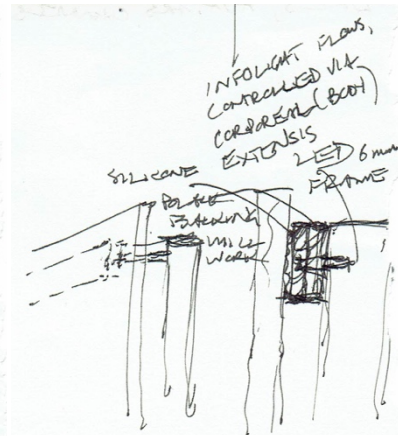 INFOLIGHT FLOWS,
CONTROLLED VIA
CORPOREAL (BODY)
EXTENSIS
LED 6mm
FRAME
SILICONE
BACKING
MILL
WORK